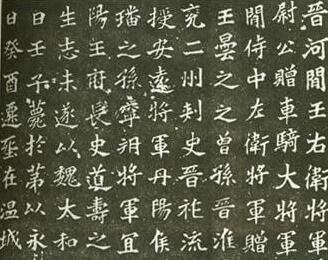 晉河間王右衛將軍
尉公贈車騎大將軍
開侍中左衛將軍贈
王曇之之曾孫晉淮
兗二州刾史晉祚流
授安遠將軍丹陽侯
璠之孫寧朔將軍宜
陽王府長史道壽之
生志未遂以魏太和
日壬子薨於苐以永
日癸酉遷塟在温城